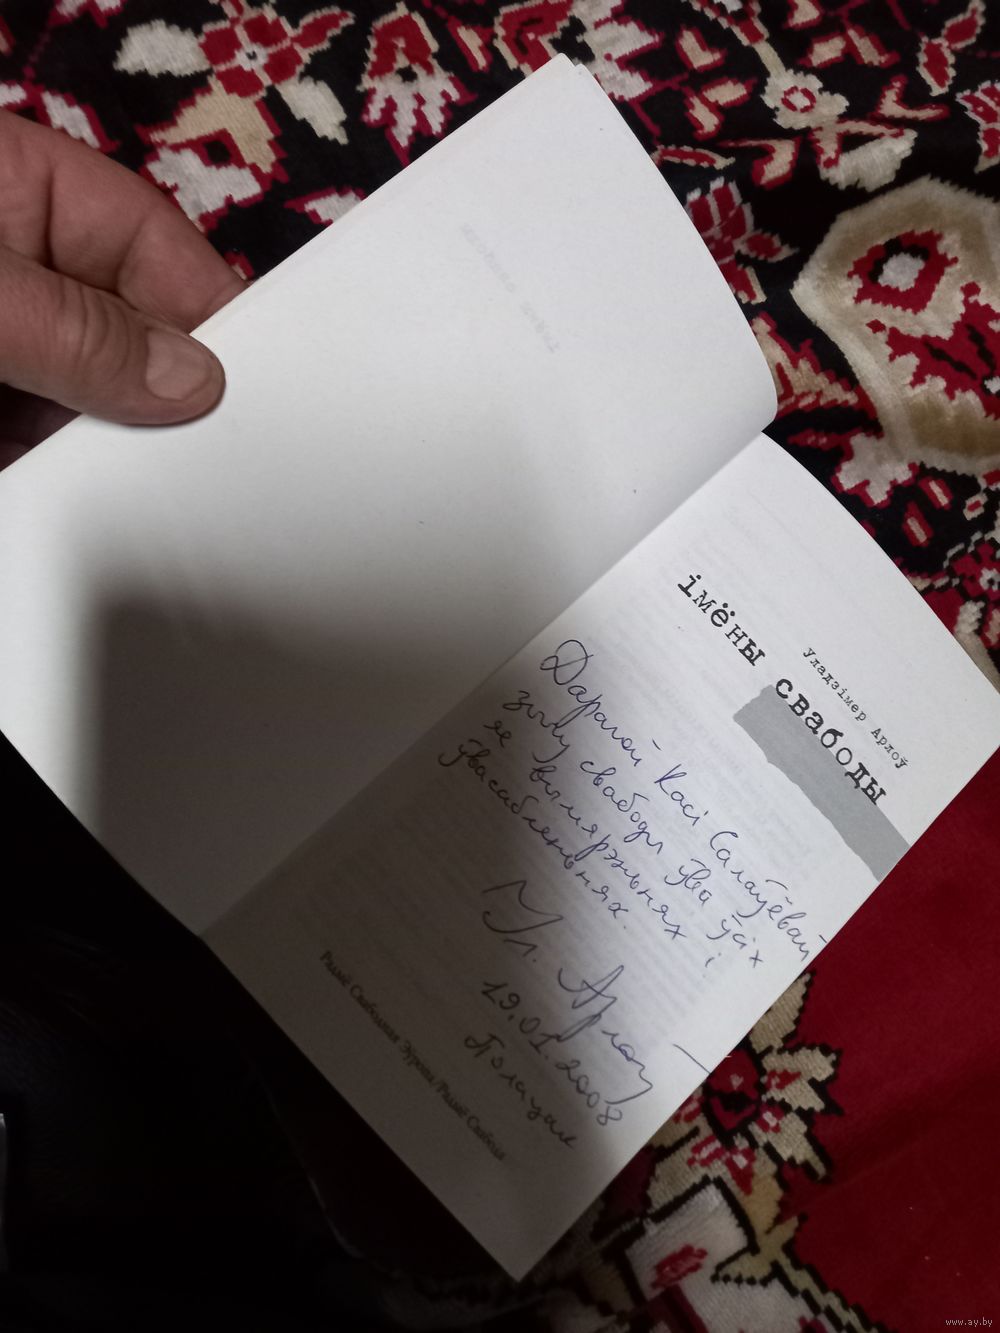 Уладзімер Арлоў
імёны свабоды
Дарагой Касі Салаўёвай
зычу свабоды ўва ўсіх
яе вымярэньнях і
ўвасабленьнях.
Ул. Арлоў
19.01.2008
Полацак
Радыё Свабодная Эўропа/Радыё Свабода
www.ay.by